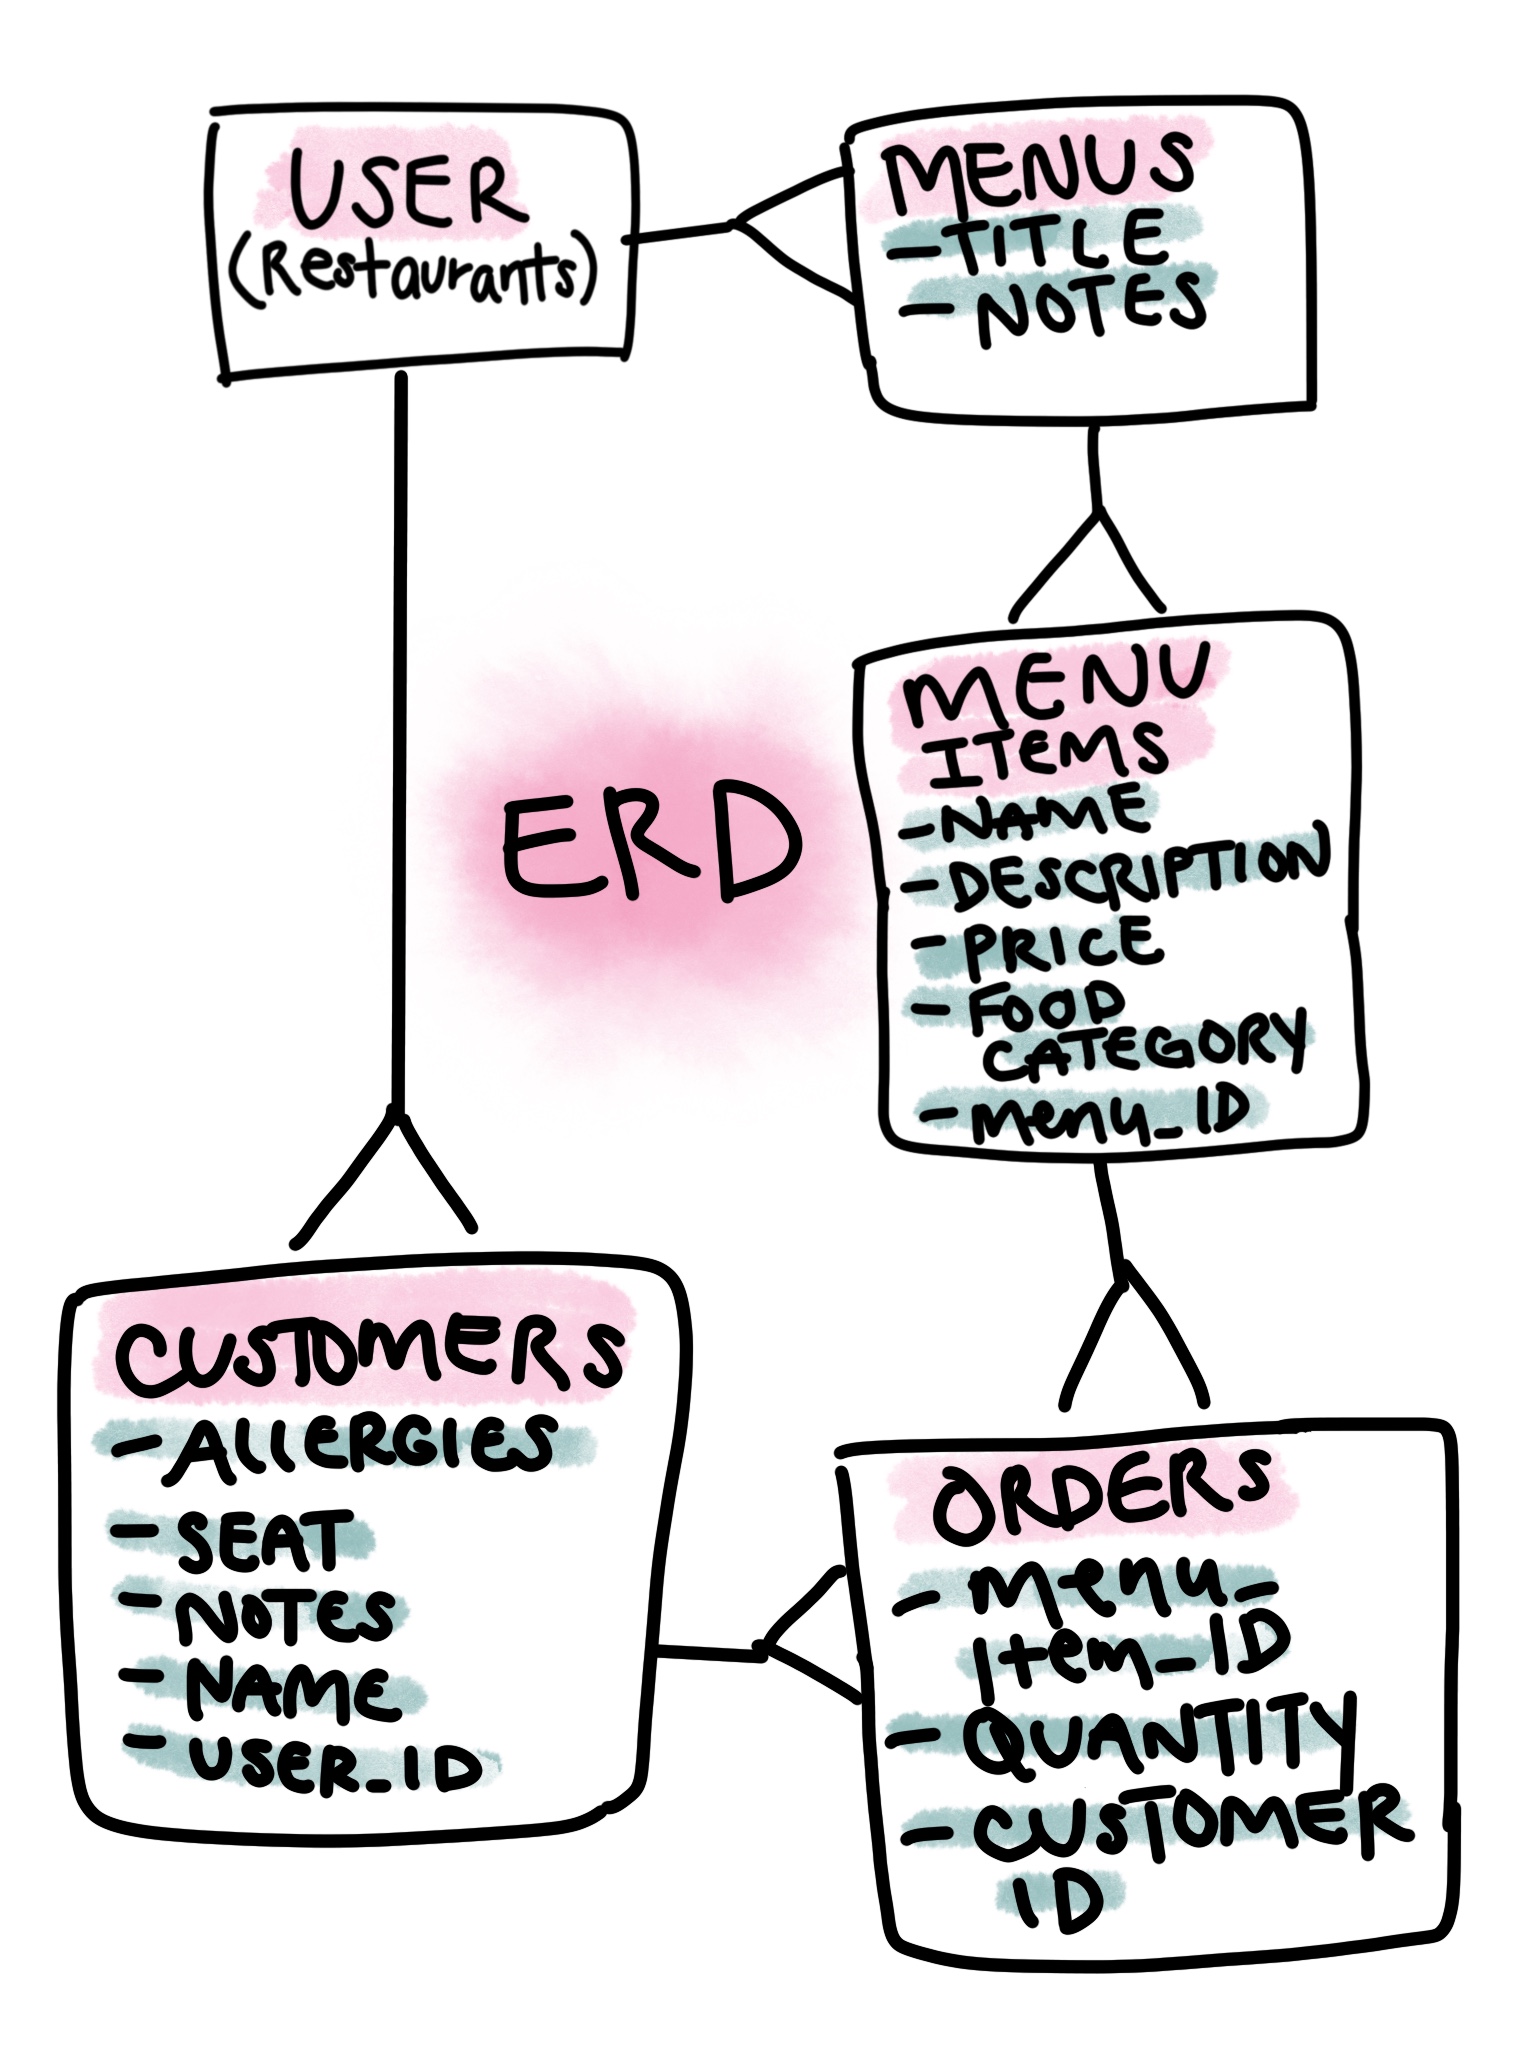 USER
(Restaurants)
MENUS
-TITLE
- NOTES
ERD
MENU
ITEMS
-NAME
-DESCRIPTION
-PRICE
-FOOD
CATEGORY
-menu_ID
CUSTOMERS
-AllERGIES
-SEAT
-NOTES
-NAME
-USER_ID
ORDERS
-menu_
Item_ID
-QUANTITY
-CUSTOMER
ID